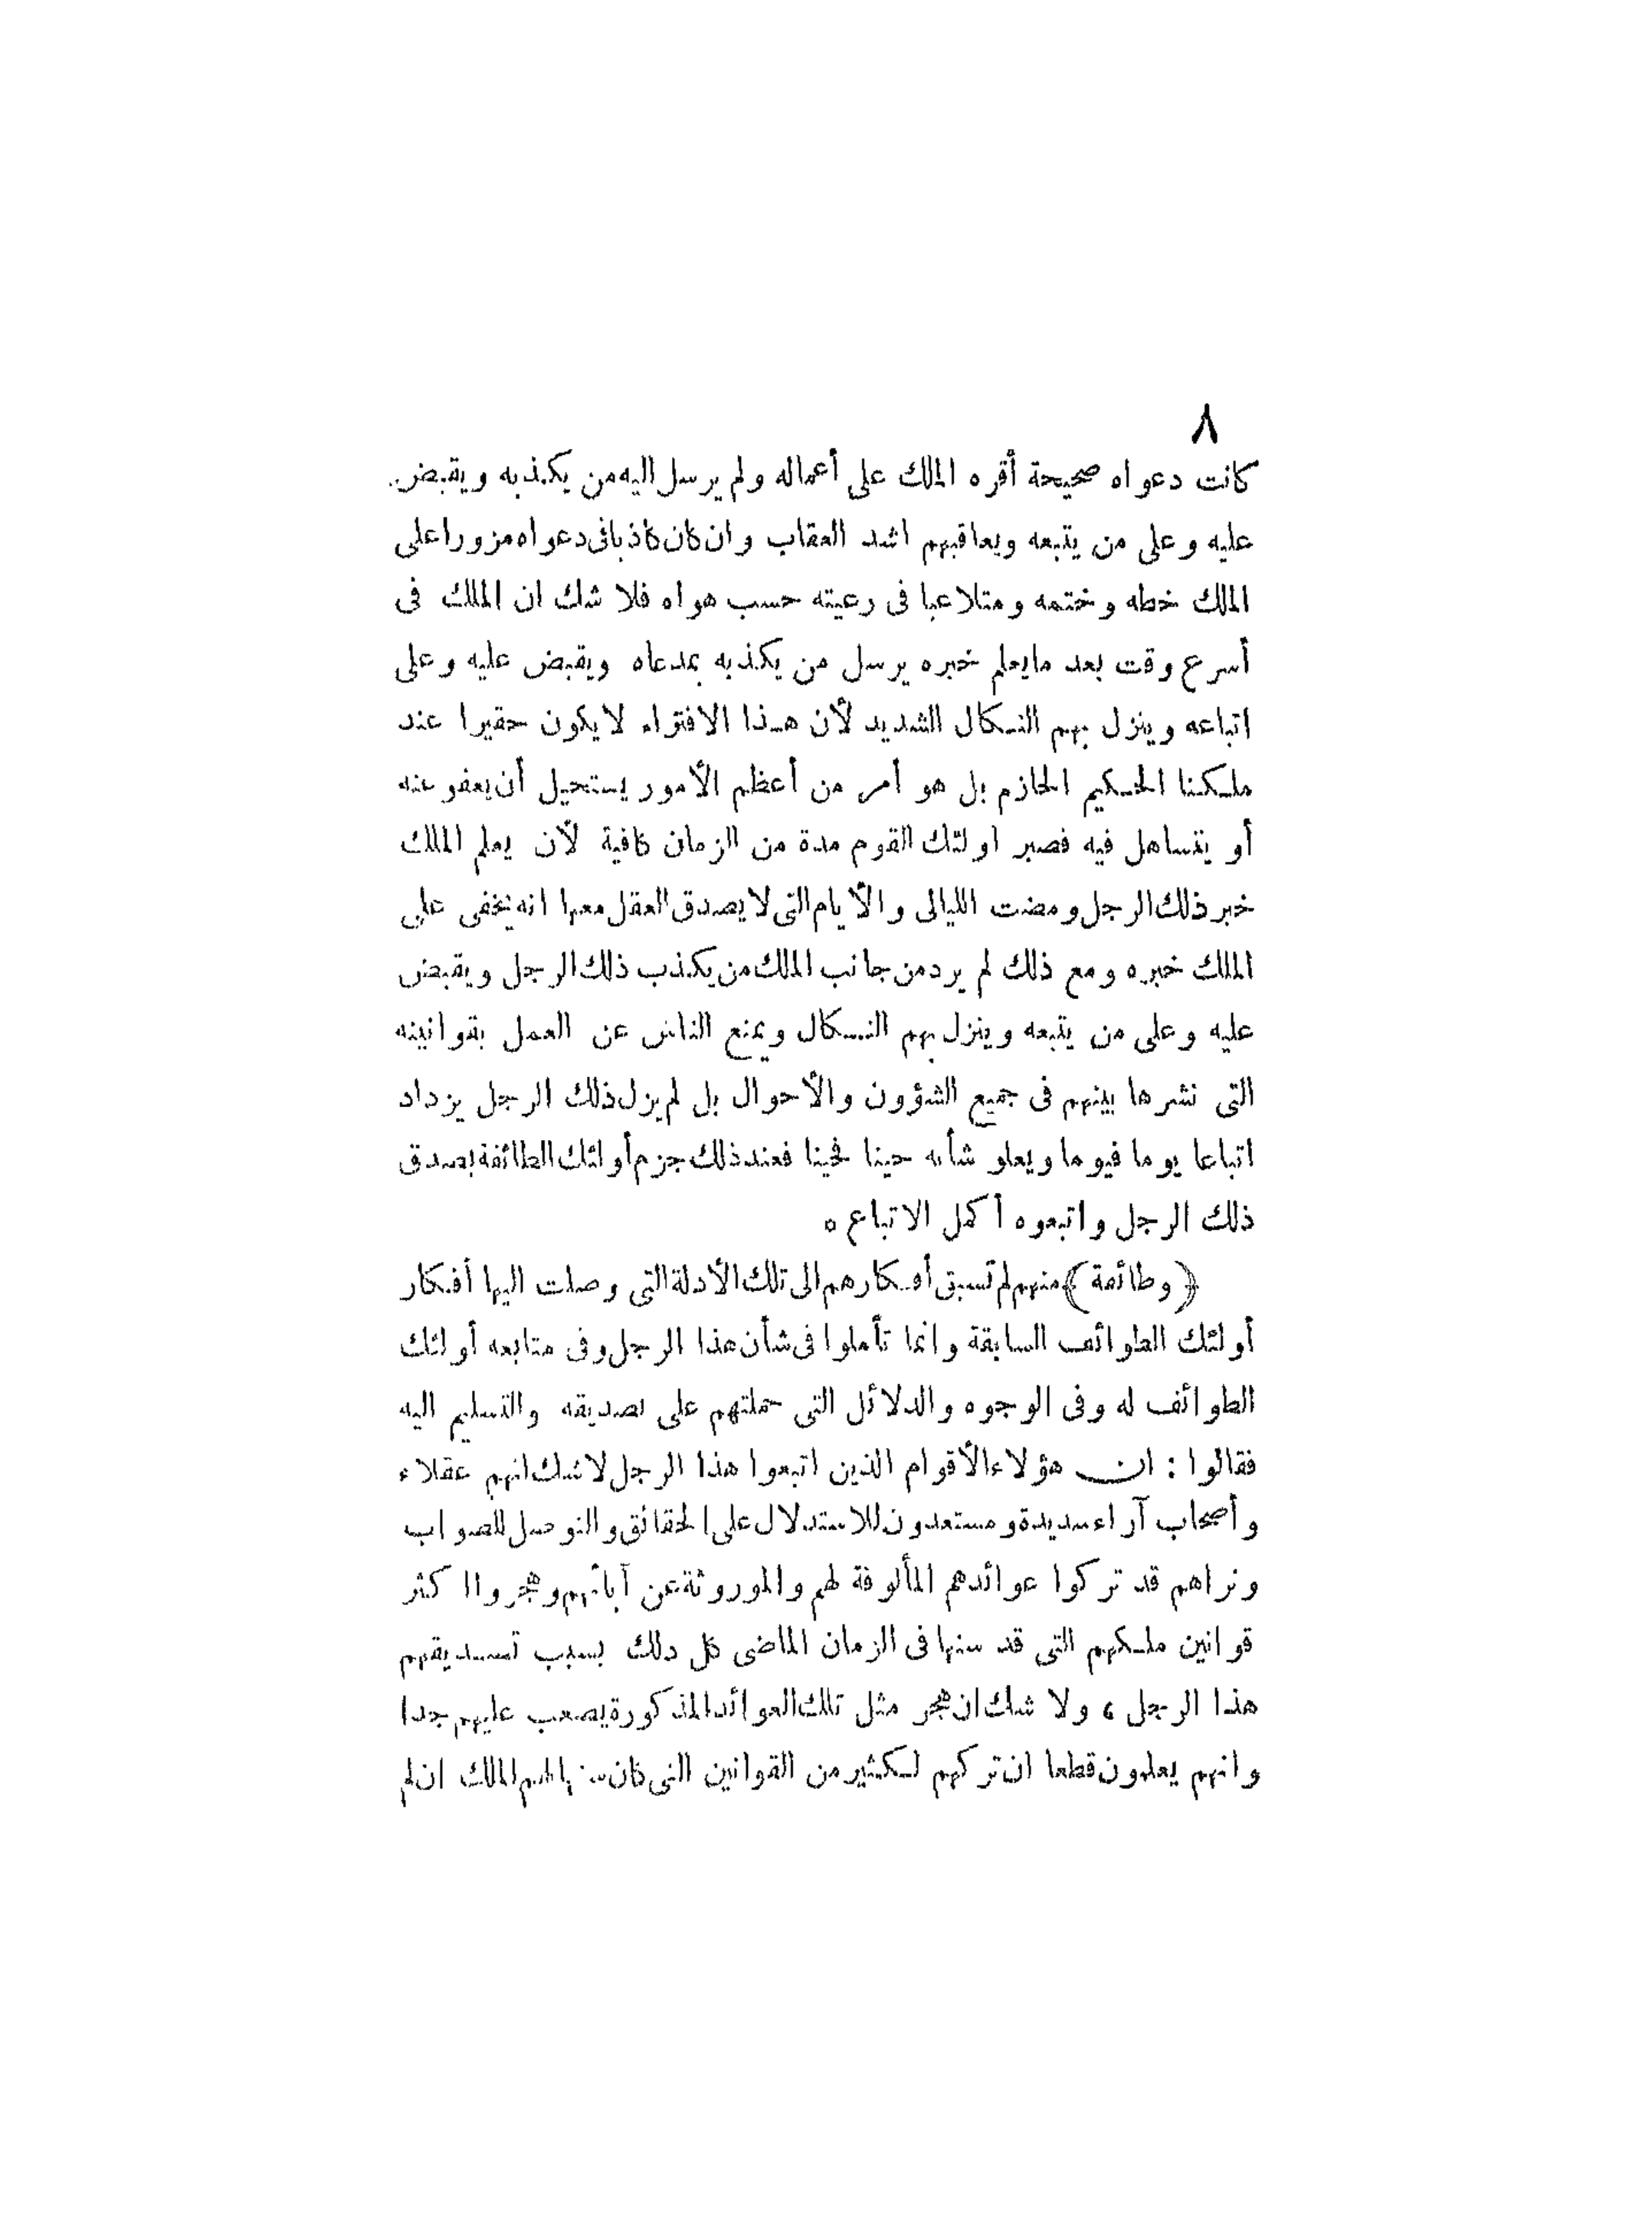 ٨
كانت دعواه صحيحة أقره الملك على أعماله ولم يرسل اليه من يكذبه ويقبض
عليه وعلى من يتبعه ويعاقبهم اشد العقاب وان كان كاذبا فى دعواه مزورا على
الملك خطه وختمه ومتلاعبا فى رعيته حسب هواه فلا شك ان الملك فى
أسرع وقت بعد ما يعلم خبره يرسل من يكذبه بمدعاه ويقبض عليه وعلى
اتباعه وينزل بهم النكال الشديد لأن هذا الافتراء لا يكون حقيرا عند
ملكنا الحكيم الحازم بل هو أمر من أعظم الأمور يستحيل أن يعفو عنه
أو يتساهل فيه فصبر اولئك القوم مدة من الزمان كافية لأن يعلم الملك
خبر ذلك الرجل ومضت الليالى والأيام التى لا يصدق العقل معها انه يخفى على
الملك خبره ومع ذلك لم يرد من جانب الملك من يكذب ذلك الرجل ويقبض
عليه وعلى من يتبعه وينزل بهم النكال ويمنع الناس عن العمل بقوانينه
التى نشرها بينهم فى جميع الشؤون والأحوال بل لم يزل ذلك الرجل يزداد
اتباعا يوما فيوما ويعلو شأنه حينا فحينا فعند ذلك جزم أولئك الطائفة بصدق
ذلك الرجل واتبعوه أكمل الاتباع ٥
﴿ وطائفة ﴾ منهم لم تسبق أفكارهم الى تلك الأدلة التى وصلت اليها أفكار
أولئك الطوائف السابقة وانما تأملوا فى شأن هذا الرجل وفى متابعه أولئك
الطوائف له وفى الوجوه والدلائل التى حملتهم على تصديقه والتسليم اليه
فقالوا : ان هؤلاء الأقوام الذين اتبعوا هذا الرجل لا شك انهم عقلاء
وأصحاب آراء سديدة ومستعدون للاستدلال على الحقائق والتوصل للصواب
ونراهم قد تركوا عوائدهم المألوفة لهم والموروثة عن آبائهم وهجروا اكثر
قوانين ملكهم التى قد سنها فى الزمان الماضى كل ذلك بسبب تصديقهم
هذا الرجل ، ولا شك ان هجر مثل تلك العوائد المذكورة يصعب عليهم جدا
وانهم يعلمون قطعا ان تركهم لكثير من القوانين التى كان سنها لهم الملك ان لم